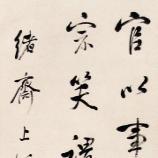 官以事
宗笑禪
緒齋上